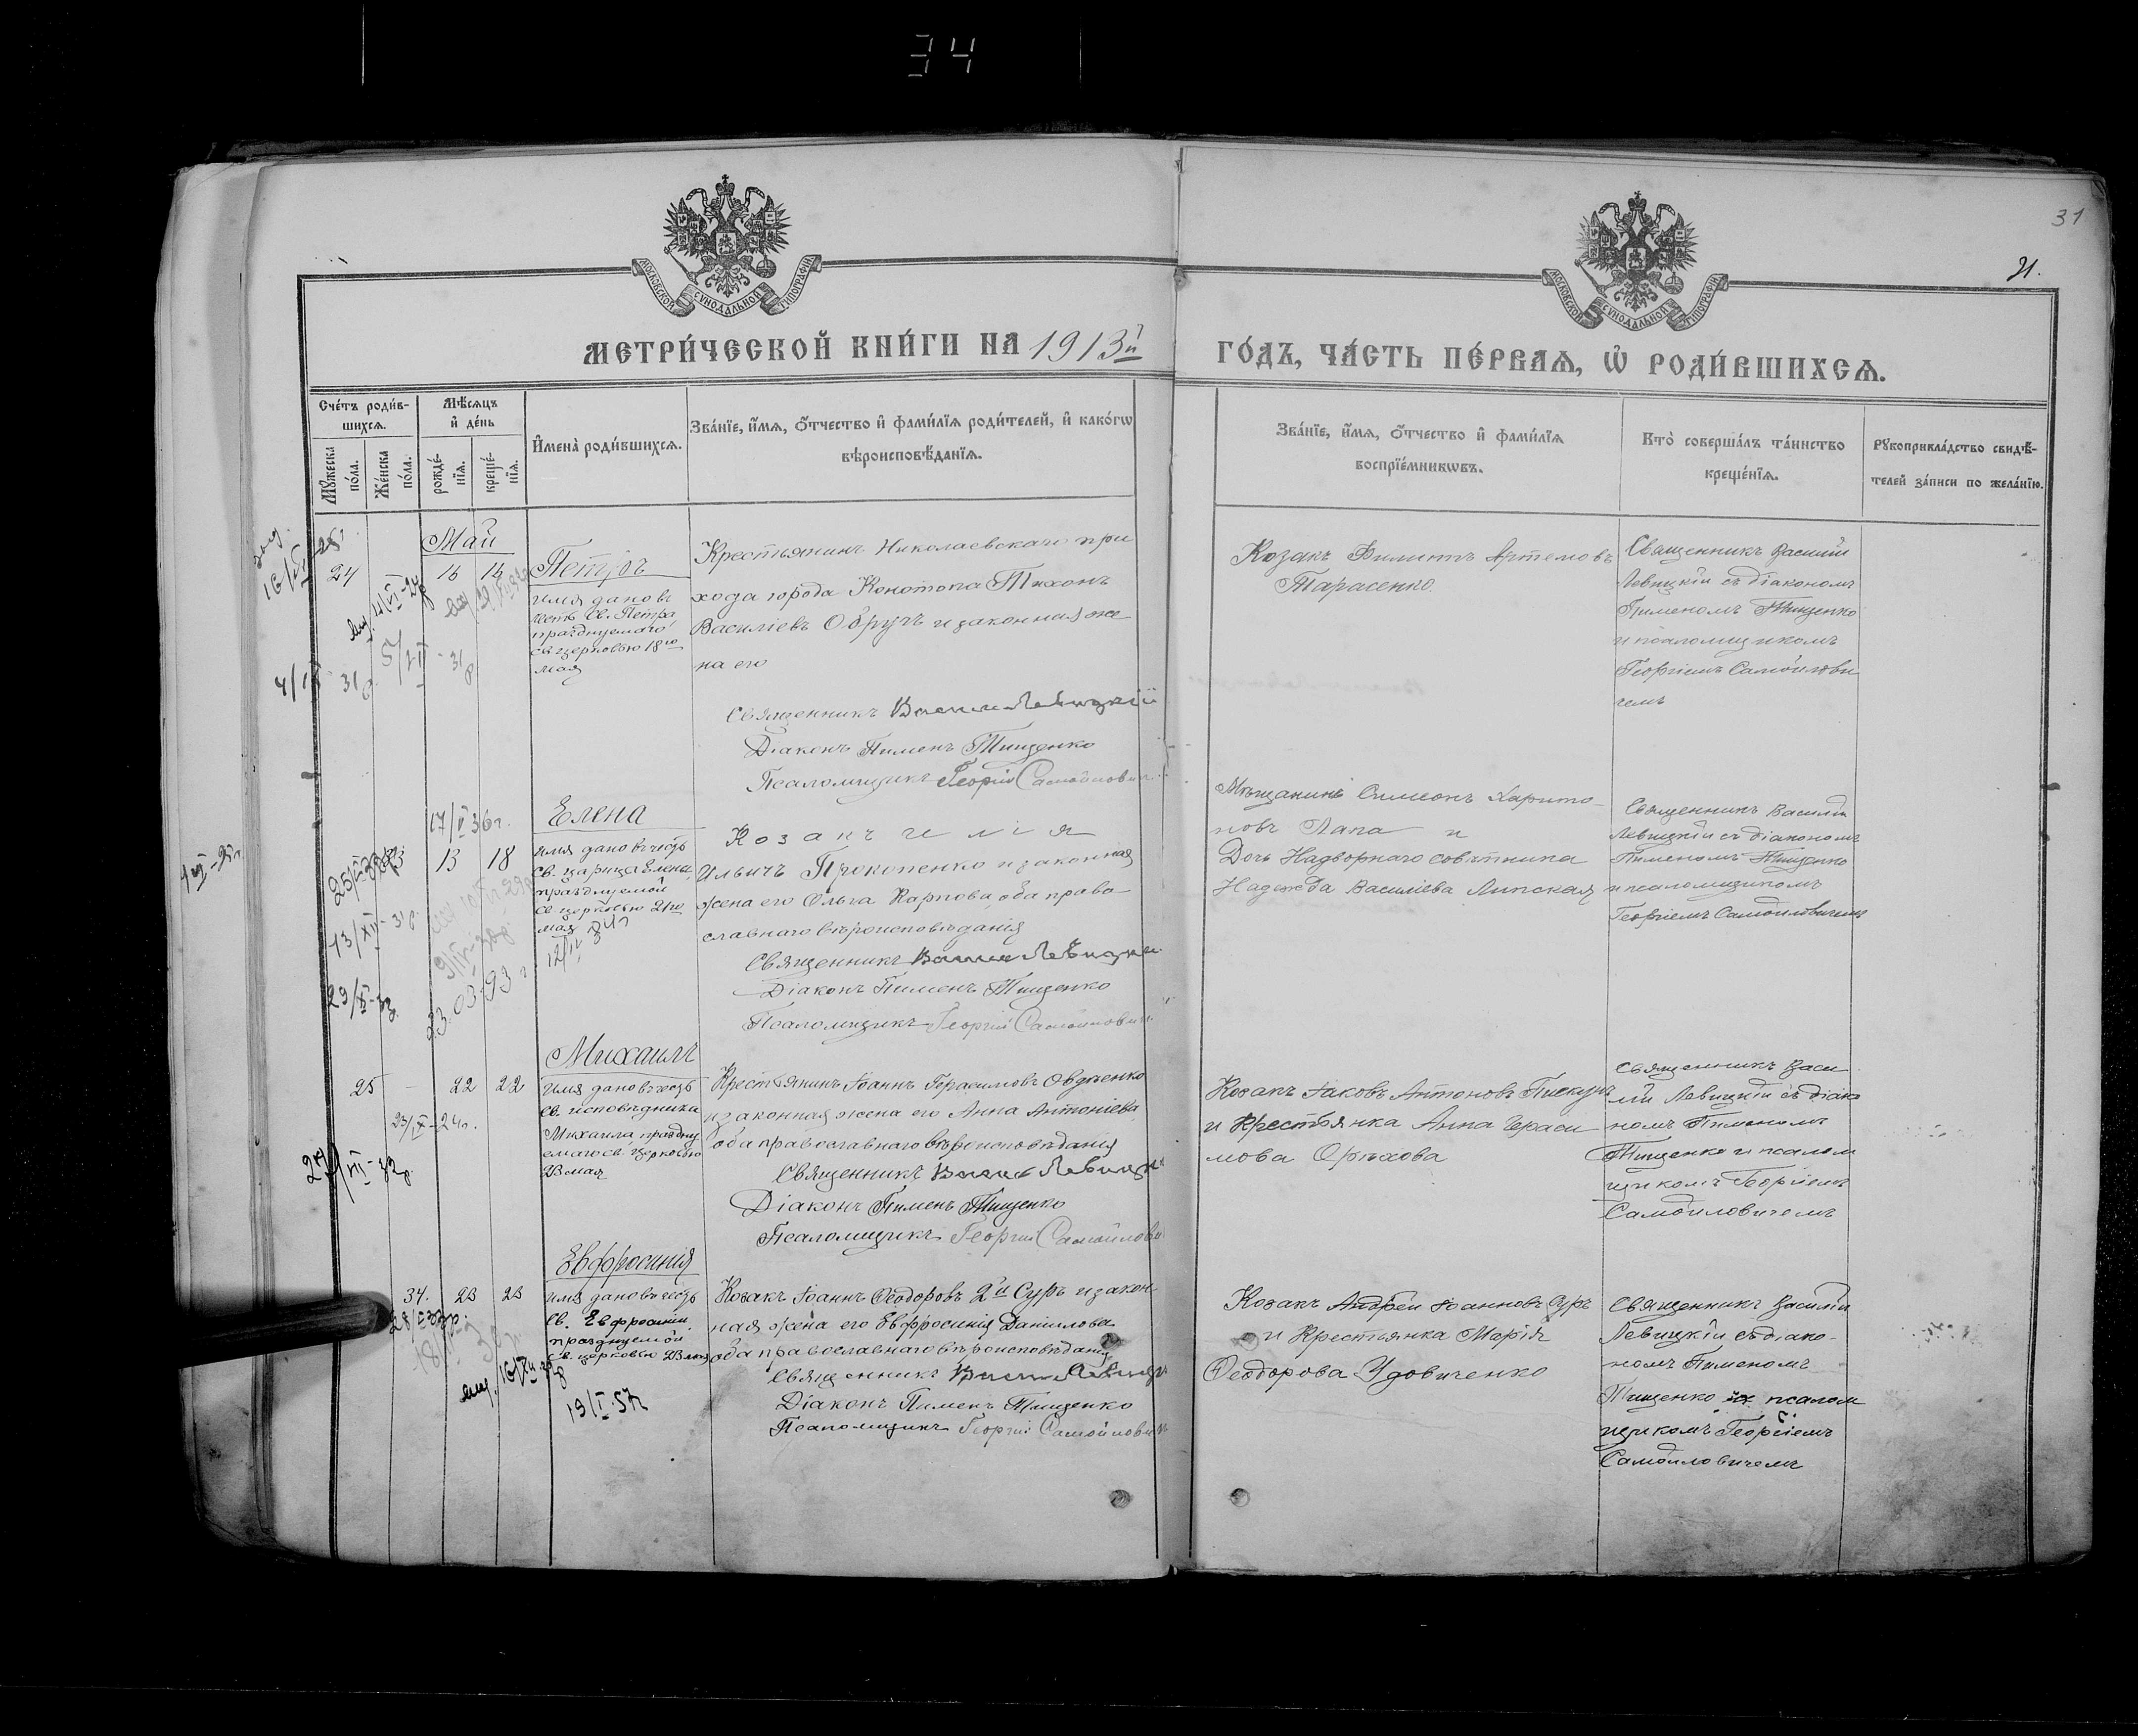 34
31
21.
МОСКОВСКОЙ СѴНОДАЛЬНОЙ ТИПОГРАФІИ
МОСКОВСКОЙ СѴНОДАЛЬНОЙ ТИПОГРАФІИ
МЕТРИ́ЧЕСКОЙ КНИ́ГИ НА 1913й
ГО́ДЪ, ЧА́СТЬ ПЕ́РВАѦ, Ѡ РОДИ́ВШИХСѦ.
Сче́тъ роди́в-
шихсѧ.
Мꙋжеска по́ла.
Же́нска по́ла.
Мѣ́сѧцъ
и҆ де́нь
рожде́-
нїѧ.
креще́-
нїѧ.
И҆мена̀ роди́вшихсѧ.
Зва́нїе, и҆́мѧ, ѻ҆́тчество и҆ фами́лїѧ роди́телей, и҆ како́гѡ
вѣроисповѣ́данїѧ.
Зва́нїе, и҆́мѧ, ѻ҆́тчество и҆ фами́лїѧ
воспрїе́мникѡвъ.
Кто̀ соверша́лъ та́инство
креще́нїѧ.
Рꙋкоприкла́дство свидѣ́-
телей за́писи по жела́нїю.
Май
24
16 16
Петръ
имя дано въ
честь Св. Петра
празднуемаго
св церковью 18го
мая
Крестьянинъ Николаевскаго при
хода города Конотопа Тихонъ
Василіевъ Обручъ и законная же
на его
Священникъ Василій Левицкій
Діаконъ Пименъ Тищенко
Псаломщикъ Георгій Самойлович
Козакъ Филиппъ Артемовъ
Тарасенко.
Священникъ Василій
Левицкій съ діакономъ
Пименомъ Тищенко
и псаломщикомъ
Георгіемъ Самойлови
чемъ
17/V 36г.
13 18
Елена
имя дано въ честь
св. царицы Елены,
празднуемой
св церковью 21го
мая
Козакъ Илія
Ильичъ Прокопенко и законная
жена его Ольга Карпова, оба право
славнаго вѣроисповѣданія
Священникъ Василій Левицкій
Діаконъ Пименъ Тищенко
Псаломщикъ Георгій Самойлович
Мѣщанинъ Симеонъ Харито-
новъ Лапа и
Дочь Надворнаго совѣтника
Надежда Василіева Липская
Священникъ Василій
Левицкій съ діакономъ
Пименомъ Тищенко
и псаломщикомъ
Георгіемъ Самойловичемъ
23.03.93 г
25 - 22 22
Михаилъ
имя дано въ честь
св. исповѣдника
Михаила праздну
емаго св. церковью
23 мая
Крестьянинъ Іоаннъ Герасимовъ Овдіенко
и законная жена его Анна Антоніева,
оба православнаго вѣроисповѣданія
Священникъ Василій Левицкій
Діаконъ Пименъ Тищенко
Псаломщикъ Георгій Самойлови
Козакъ Іаковъ Антоновъ Пискунъ
и Крестьянка Анна Гераси
мова Орѣхова
Священникъ Васи
лій Левицкій съ діако
номъ Пименомъ
Тищенко и псалом
щикомъ Георгіемъ
Самойловичемъ
23/IX-24г.
34. 23 23
Евфросинія
имя дано въ честь
Св. Евфросиніи
празднуемой
св. церковью 23 мая
Козакъ Іоаннъ Ѳеодоровъ 2й Суръ и закон-
ная жена его Евфросинія Даніилова
оба православнаго вѣроисповѣданія
Священникъ Василій Левицкій
Діаконъ Пименъ Тищенко
Псаломщикъ Георгій Самойлович
Козакъ Андрей Іоанновъ Суръ
и Крестьянка Марія
Ѳеодорова Удовиченко
Священникъ Василій
Левицкій съ діако-
номъ Пименомъ
Тищенко и псалом
щикомъ Георгіемъ
Самойловичемъ
19/I.57г